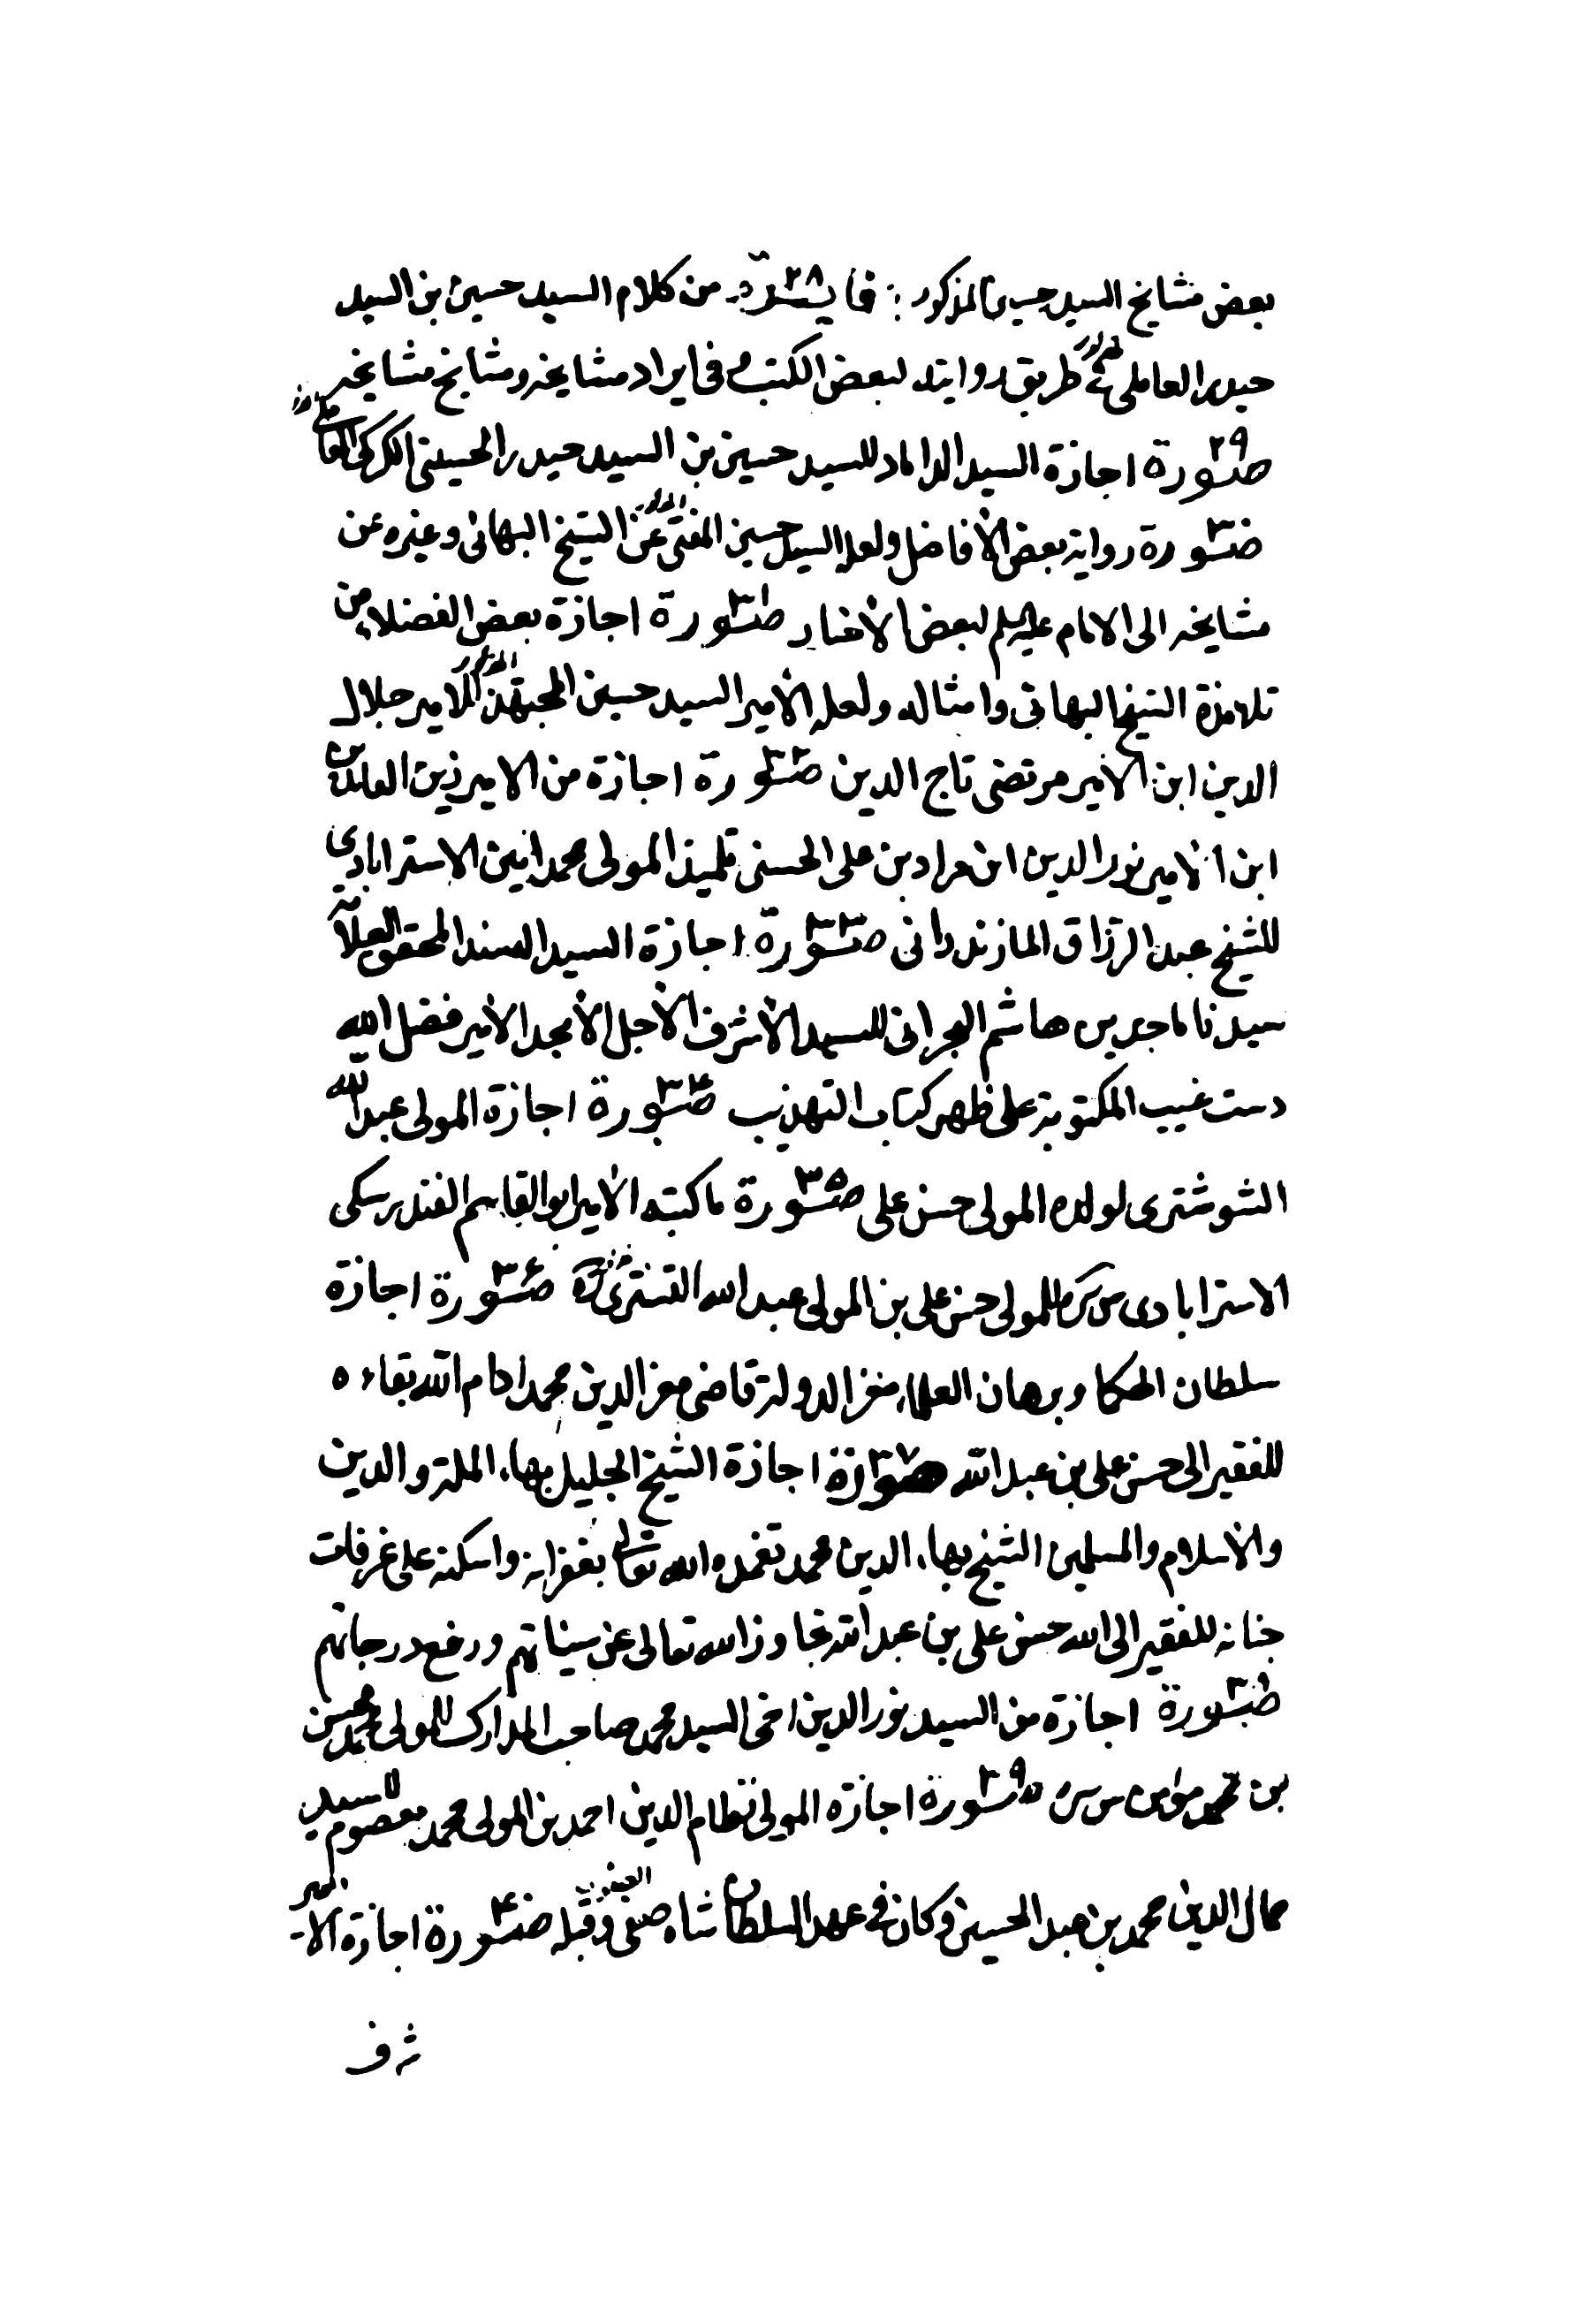 بعض مشايخ السيد حسين المذكور ٢٨ فايدة من كلام السيد حسين بن السيد
حيدر العاملي المذكور في طريق روايته لبعض الكتب وفي ايراد مشايخه ومشايخ مشايخه
٢٩ صورة اجازة السيد الداماد للسيد حسين بن السيد حيدر الحسيني الكركي العاملي
٣٠ صورة رواية بعض الأفاضل ولعله السيد حسين المفتي المذكور عن الشيخ البهائي وغيره عن
مشايخه الى الامام عليه السلم لبعض الأخبار ٣١ صورة اجازة بعض الفضلاء من
تلامذة الشيخ البهائي وامثاله ولعله الأمير السيد حسين المجتهد المذكور للامير جلال
الدين ابن الأمير مرتضى تاج الدين ٣٢ صورة اجازة من الامير زين العابدين
ابن الأمير نور الدين ابن مراد بن علي الحسني تلميذ المولى محمد امين الاسترابادي
للشيخ عبد الرزاق المازندراني ٣٣ صورة اجازة السيد السند المحقق العلامة
سيدنا ماجد بن هاشم البحراني للسيد الأشرف الأجل الأمجد الأمير فضل الله
دست غيب المكتوبة على ظهر كتاب التهذيب ٣٤ صورة اجازة المولى عبد الله
الشوشتري لولده المولى حسن علي ٣٥ صورة ما كتبه الأمير ابو القاسم الفندرسكي
الاسترابادي للمولى حسن علي بن المولى عبد الله التستري ٣٦ صورة اجازة
سلطان الحكما وبرهان العلماء معز الدولة قاضي معز الدين محمد ادام الله بقاءه
للفقير الى حسن علي بن عبد الله ٣٧ صورة اجازة الشيخ الجليل بهاء الملة والدين
والأسلام والمسلمين الشيخ بهاء الدين محمد تغمده الله تعالى بغفرانه واسكنه على غرفات
جنانه للفقير الى الله حسن علي بن عبد الله تجاوز الله تعالى عن سيئاتهم ورفع درجاتهم
صورة اجازة من السيد نور الدين اخي السيد محمد صاحب المدارك للمولى محمد محسن
بن محمد مؤمن ٣٩ صورة اجازة المولى نظام الدين احمد بن المولى محمد معصوم للسيد
كمال الدين محمد بن عبد الحسين وكان في عهد السلطان شاه صفي الصفوي وقبله ٤٠ صورة اجازة الامير
شرف